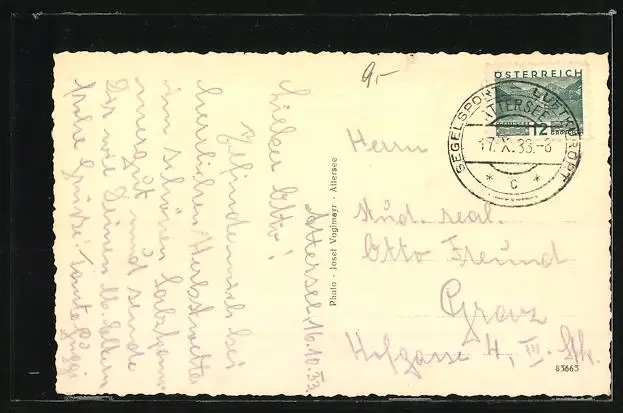 9,-
ÖSTERREICH
12
GROSCHEN
SEGELSPORT LUFTKURORT
ATTERSEE
17.X.33.-8
* C *
Attersee, 16.10.33.
Lieber Otto!
Befinde mich bei
herrlichem Herbstwetter
im schönen Salzkammer-
gut und sende
Dir wie Deinen lb. Eltern
frohe Grüße! Tante
Photo - Josef Voglmayr - Attersee
Herrn
stud. real.
Otto Freund
Graz
Hofgasse 4, III. Stk.
83663